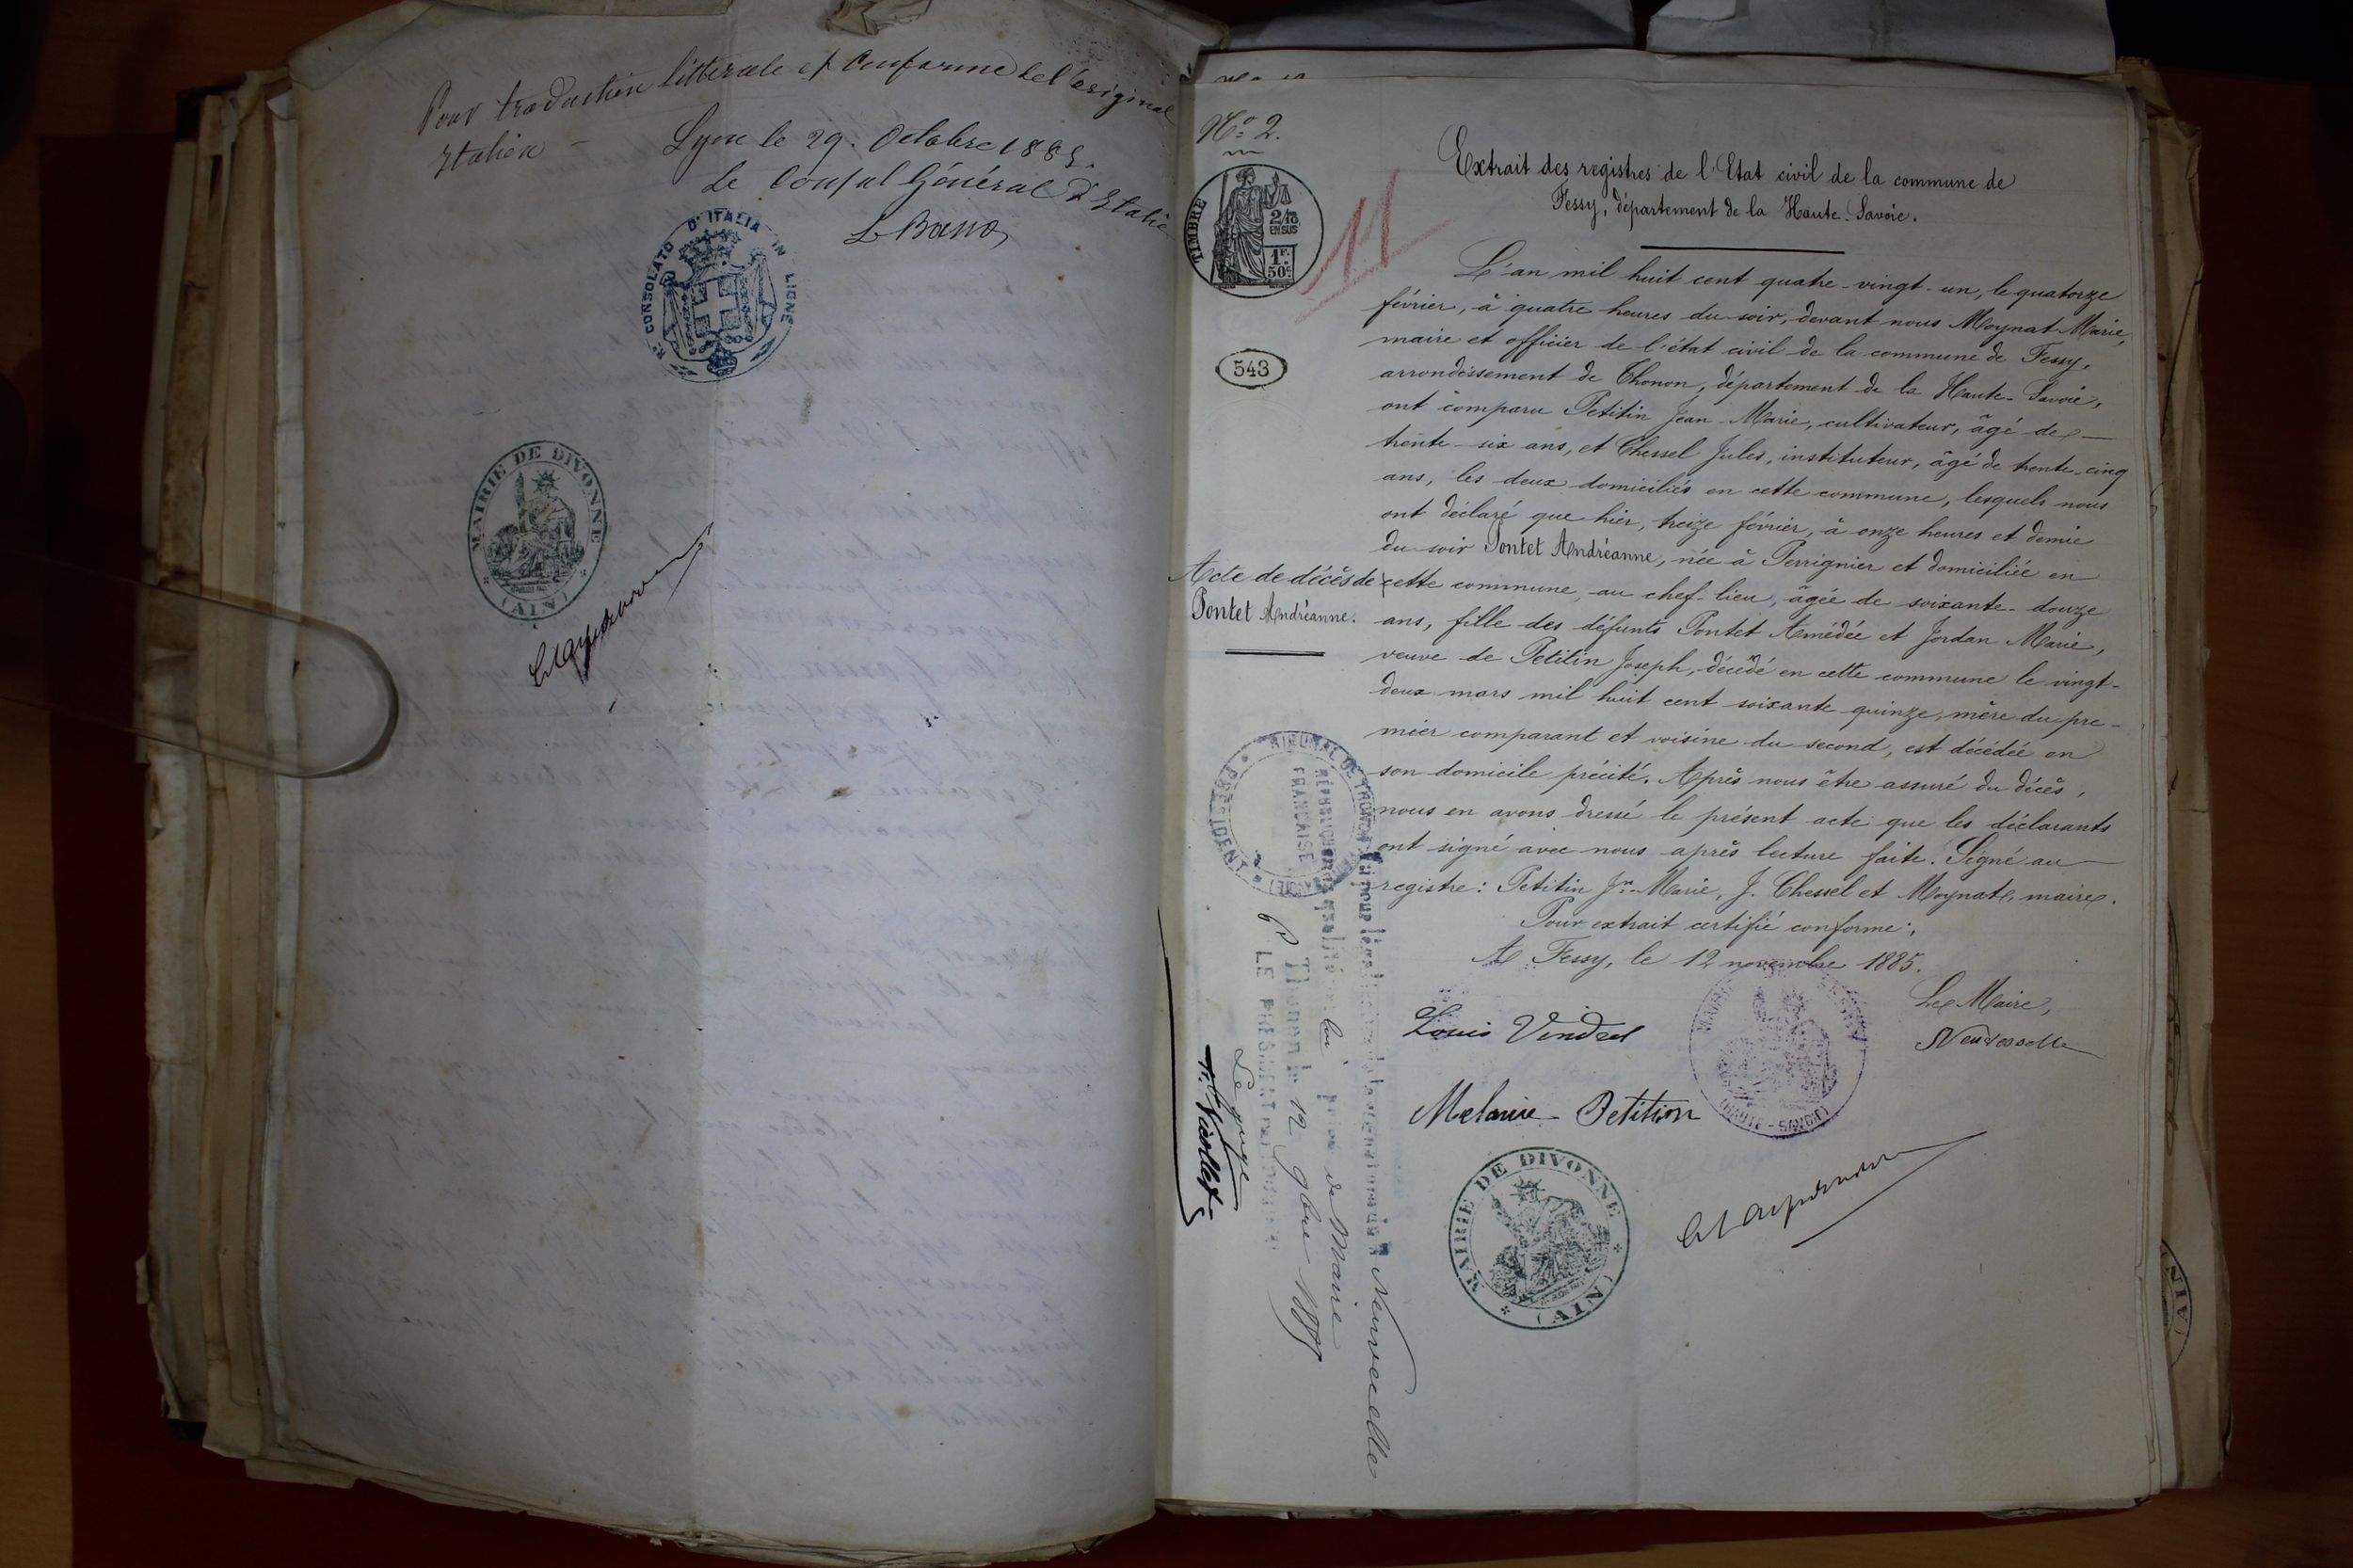 Pour traduction littérale et conforme de l'original
Italien -
Lyon le 29. Octobre 1885.
Le Consul Général d'Italie
L Basso
Rº CONSOLATO D'ITALIA IN LIONE
MAIRIE DE DIVONNE
(AIN)
Nº 2.
TIMBRE
2/10
EN SUS
1F.
50c.
11
543
Extrait des registres de l'Etat civil de la commune de
Fessy, département de la Haute-Savoie.
L'an mil huit cent quatre-vingt-un, le quatorze
février, à quatre heures du soir, devant nous Moynat Marie,
maire et officier de l'état civil de la commune de Fessy,
arrondissement de Thonon, département de la Haute-Savoie,
ont comparu Petitin Jean-Marie, cultivateur, âgé de
trente-six ans, et Chessel Jules, instituteur, âgé de trente-cinq
ans, les deux domiciliés en cette commune, lesquels nous
ont déclaré que hier, treize février, à onze heures et demie
du soir Pontet Andréanne, née à Perrignier et domiciliée en
Acte de décès de
Pontet Andréanne.
cette commune, au chef-lieu, âgée de soixante-douze
ans, fille des défunts Pontet Amédée et Jordan Marie,
veuve de Petitin Joseph, décédé en cette commune le vingt-
deux mars mil huit cent soixante quinze, mère du pre-
mier comparant et voisine du second, est décédée en
son domicile précité. Après nous être assuré du décès,
nous en avons dressé le présent acte que les déclarants
ont signé avec nous après lecture faite. Signé au
registre: Petitin Jn-Marie, J. Chessel et Moynat, maire.
Pour extrait certifié conforme:
A Fessy, le 12 novembre 1885.
Le Maire,
Louis Vindret
Melanie Petition
MAIRIE
(HAUTE-SAVOIE)
MAIRIE DE DIVONNE
(AIN)
TRIBUNAL DE THONON
PRESIDENT
RÉPUBLIQUE
FRANÇAISE
Neuvecelle
de Maire
Thonon le 12 9bre 1885
LE PRÉSIDENT
Le juge